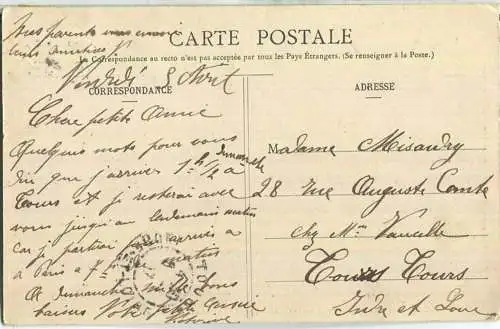 Mes parents vous envoie
leurs amitiés
CARTE POSTALE
La Correspondance au recto n'est pas acceptée par tous les Pays Étrangers. (Se renseigner à la Poste.)
Vendredi 8 Avril
CORRESPONDANCE
Chère petite Amie
Quelques mots pour vous
dire que j'arrive dimanche
1h 1/2 à
Tours et je resterai avec
vous jusqu'au lendemain matin
car je partirai pour
à Paris à 7h matin
A dimanche mille bons
baisers Votre petite
ADRESSE
Madame Misandry
28 Rue Auguste Comte
chez Mme Vauzelle
Tours Tours
Indre et Loire